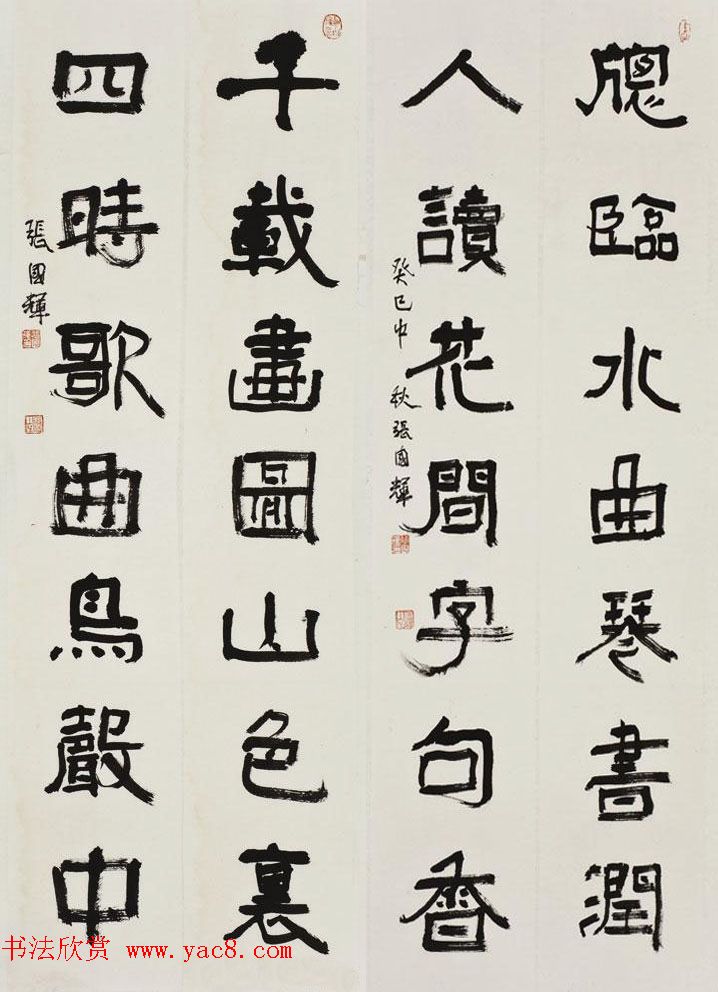 牕臨水曲琴書潤
人讀花間字句香
癸巳中秋張國輝
千載畫圖山色裏
四時歌曲鳥聲中
張國輝
书法欣赏 www.yac8.com